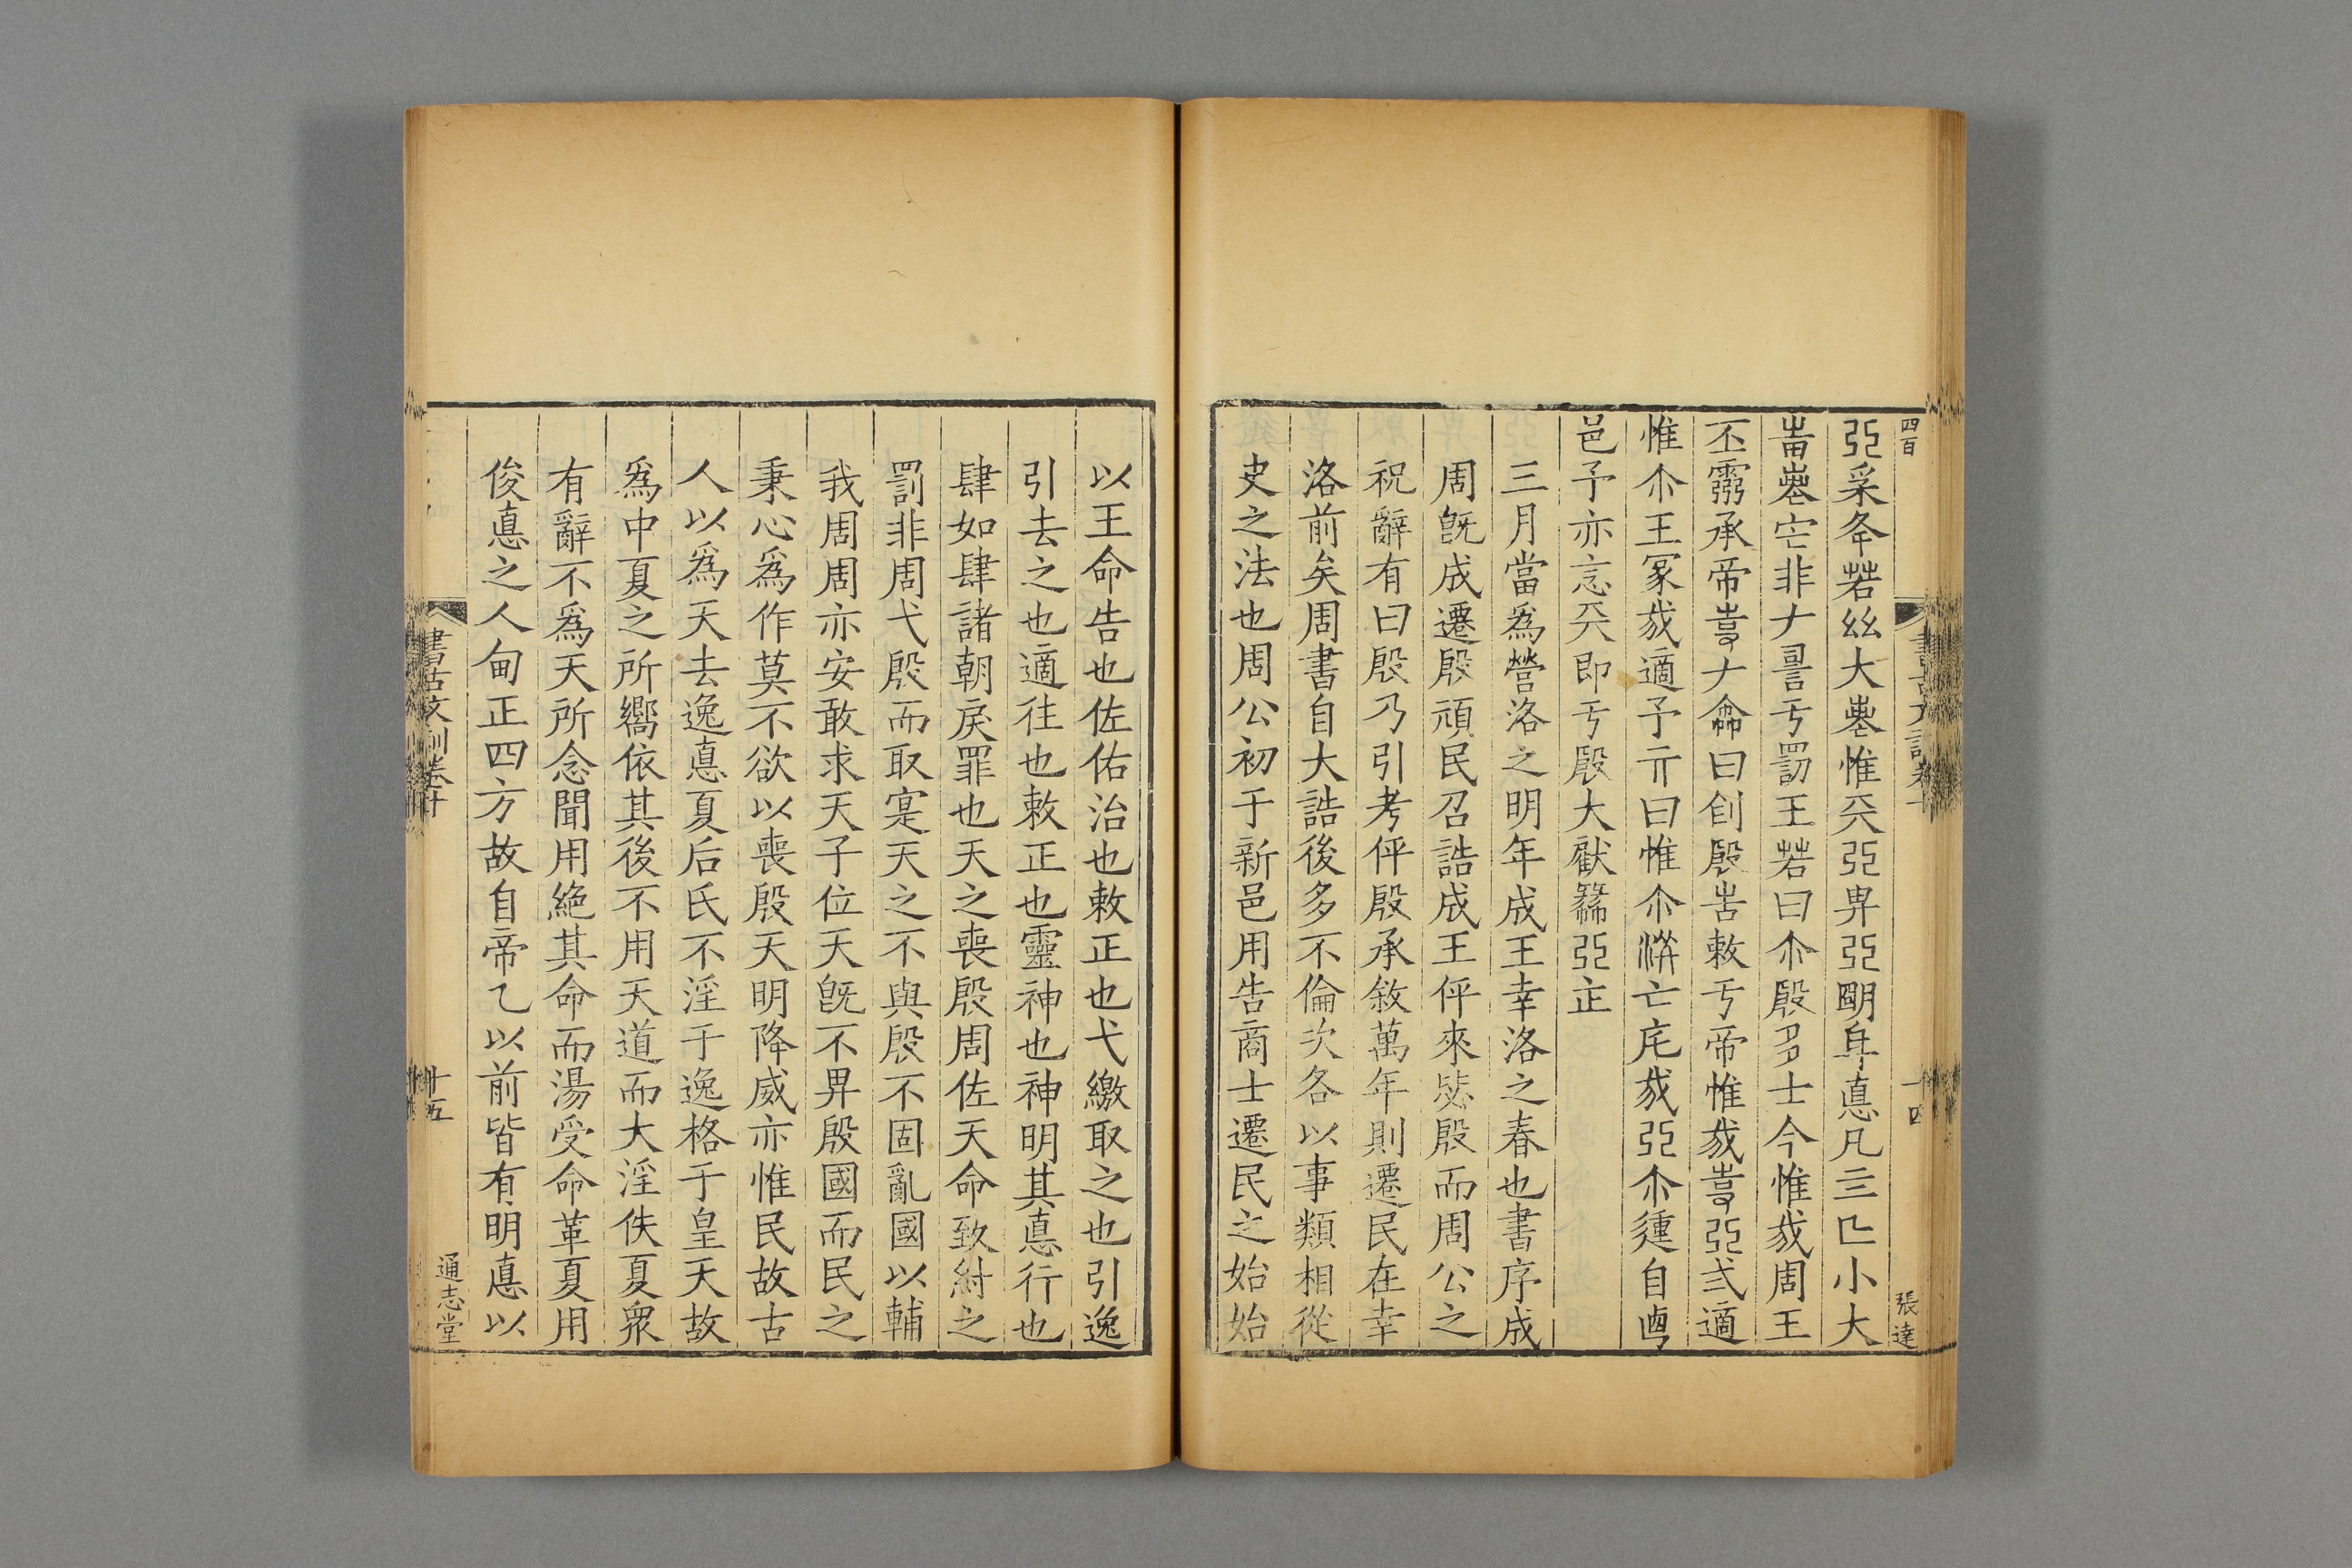 四百
書古文訓卷十
十四
張達
亞采夅若丝大㗊惟兲亞畀亞朙𠂆悳凡亖匚小大
㗊空非ナ𧥝亏罰王若曰尒殷多士今惟𢦓周王
丕承帝ナ曰創殷敕亏帝惟𢦓亞弍適
惟尒王冢𢦓適予亓曰惟尒亡𢦓亞尒自
邑予亦兲即亏殷大猒亞
三月當爲營洛之明年成王幸洛之春也書序成
周旣成遷殷頑民召誥成王伻來毖殷而周公之
祝辭有曰殷乃引考伻殷承敘萬年則遷民在幸
洛前矣周書自大誥後多不倫次各以事類相從
史之法也周公初于新邑用告商士遷民之始始
以王命告也佐佑治也敕正也弋繳取之也引逸
引去之也適往也敕正也靈神也神明其悳行也
肆如肆諸朝戾罪也天之喪殷周佐天命致紂之
罰非周弋殷而取寔天之不與殷不固亂國以輔
我周周亦安敢求天子位天旣不畀殷國而民之
秉心爲作莫不欲以喪殷天明降威亦惟民故古
人以爲天去逸悳夏后氏不淫于逸格于皇天故
爲中夏之所嚮依其後不用天道而大淫佚夏衆
有辭不爲天所念聞用絕其命而湯受命革夏用
俊悳之人甸正四方故自帝乙以前皆有明悳以
書古文訓卷十
十五
通志堂